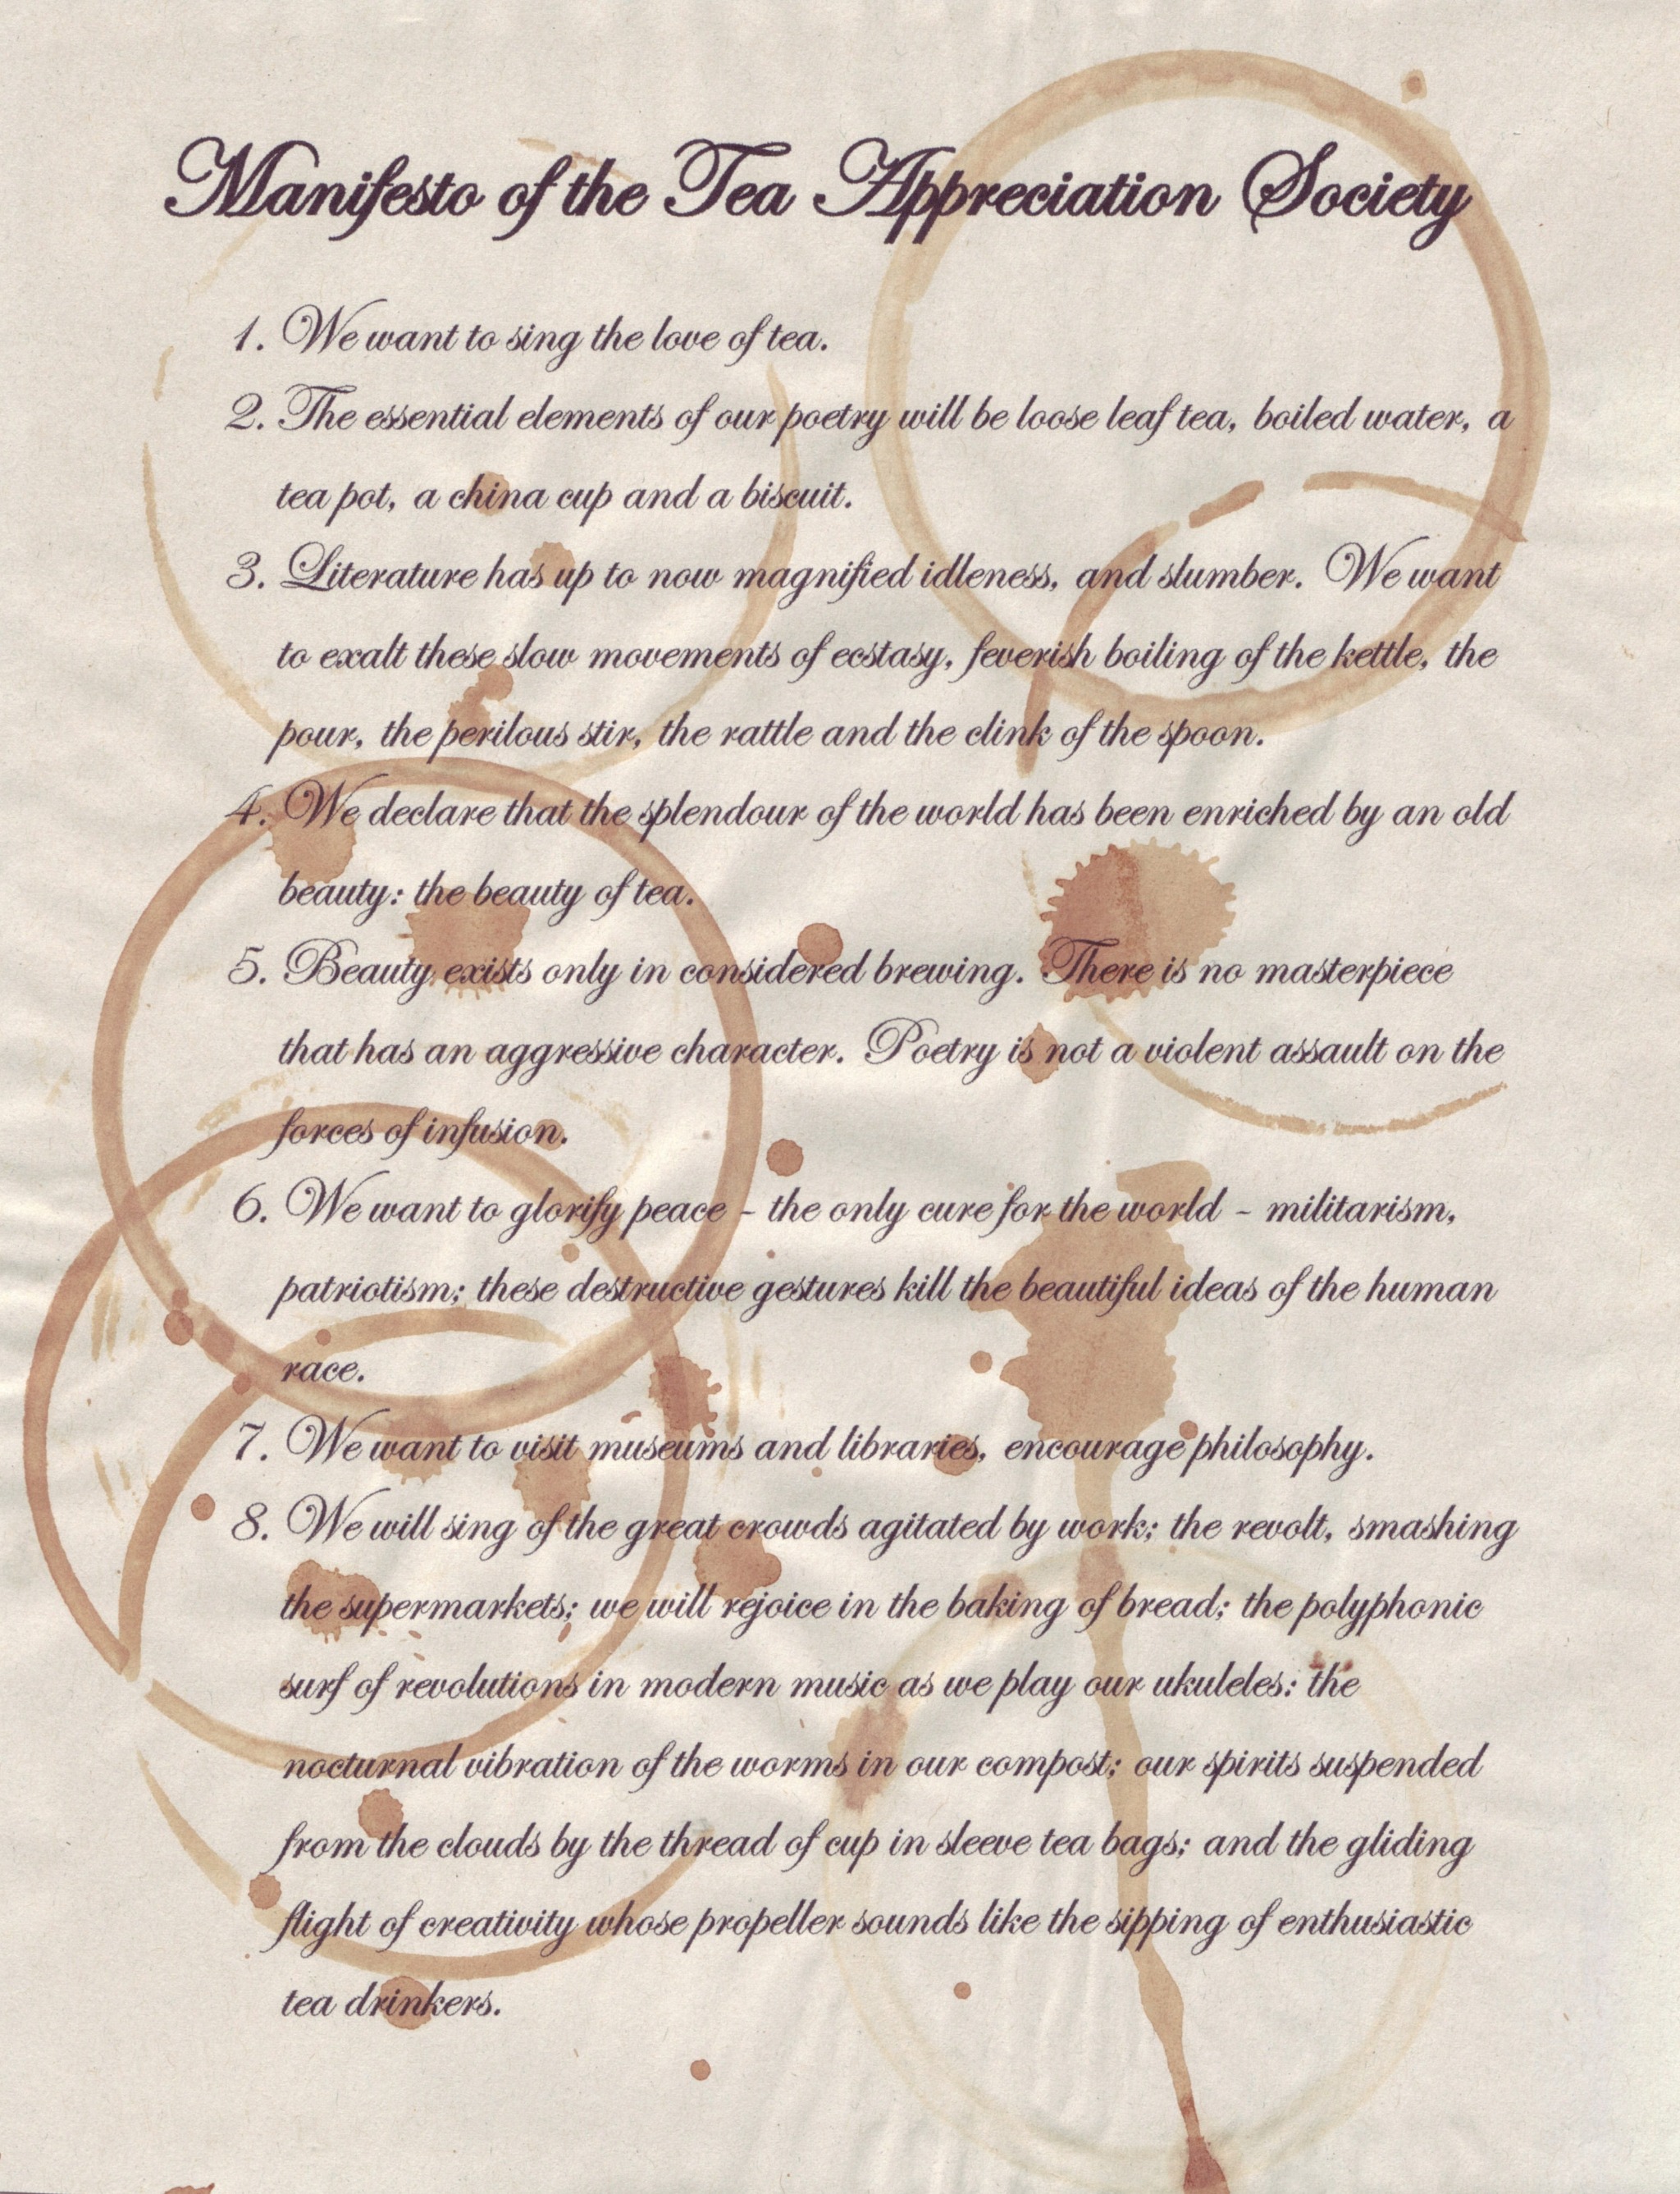 Manifesto of the Tea Appreciation Society
1. We want to sing the love of tea.
2. The essential elements of our poetry will be loose leaf tea, boiled water, a
tea pot, a china cup and a biscuit.
3. Literature has up to now magnified idleness, and slumber. We want
to exalt these slow movements of ecstasy, feverish boiling of the kettle, the
pour, the perilous stir, the rattle and the clink of the spoon.
4. We declare that the splendour of the world has been enriched by an old
beauty: the beauty of tea.
5. Beauty exists only in considered brewing. There is no masterpiece
that has an aggressive character. Poetry is not a violent assault on the
forces of infusion.
6. We want to glorify peace - the only cure for the world - militarism,
patriotism; these destructive gestures kill the beautiful ideas of the human
race.
7. We want to visit museums and libraries, encourage philosophy.
8. We will sing of the great crowds agitated by work; the revolt, smashing
the supermarkets; we will rejoice in the baking of bread; the polyphonic
surf of revolutions in modern music as we play our ukuleles: the
nocturnal vibration of the worms in our compost; our spirits suspended
from the clouds by the thread of cup in sleeve tea bags; and the gliding
flight of creativity whose propeller sounds like the sipping of enthusiastic
tea drinkers.